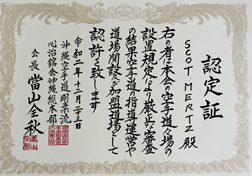 認定証
SCOT MERTZ 殿
右の者は本会の空手道々場の
設置規定により厳正な審査
の結果空手道の指導運営や
道場開設を加盟道場として
認許を致します
令和二年十二月二十三日
沖縄空手道剛柔流
心治館会沖縄総本部
会長 當山全秋